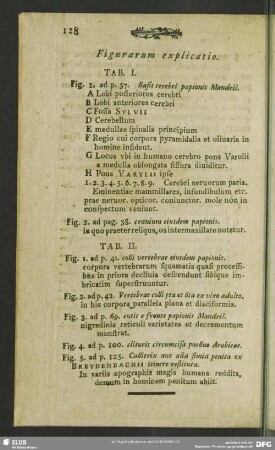 128
Figurarum explicatio.
TAB. I.
Fig. 1. ad p. 37. Basis cerebri papionis Mandril.
A Lobi posteriores cerebri
B Lobi anteriores cerebri
C Fossa SYLVII
D Cerebellum
E medullae spinalis principium
F Regio cui corpora pyramidalia et oliuaria in
homine insident.
G Locus vbi in humano cerebro pons Varolii
a medulla oblongata fissura diuiditur.
H Pons VAROLII ipse
1. 2. 3. 4. 5. 6. 7. 8. 9. Cerebri neruorum paria.
Eminentiae mammillares, infundibulum etc.
prae neruor. opticor. coniunctor. mole non in
conspectum veniunt.
Fig. 2. ad pag. 38. cranium eiusdem papionis.
in quo praeter reliqua, os intermaxillare notetur.
TAB. II.
Fig. 1. ad p. 41. colli vertebrae eiusdem papionis.
corpora vertebrarum squamatis quasi processi-
bus in priora decliuia descendunt sibique im-
bricatim superstruuntur.
Fig. 2. ad p. 42. Vertebrae colli 5ta et 6ta ex viro adulto,
in his corpora parallela plana et disciformia.
Fig. 3. ad p. 69. cutis e fronte papionis Mandril.
nigredinis reticuli varietates et decrementum
monstrat.
Fig. 4. ad p. 100. clitoris circumcisa puellae Arabicae.
Fig. 5. ad p. 125. Callitrix aut alia simia penita ex
BREYDENBACHII itinere vestitura.
In variis apographis magis humana reddita,
demum in hominem penitum abiit.
SLUB